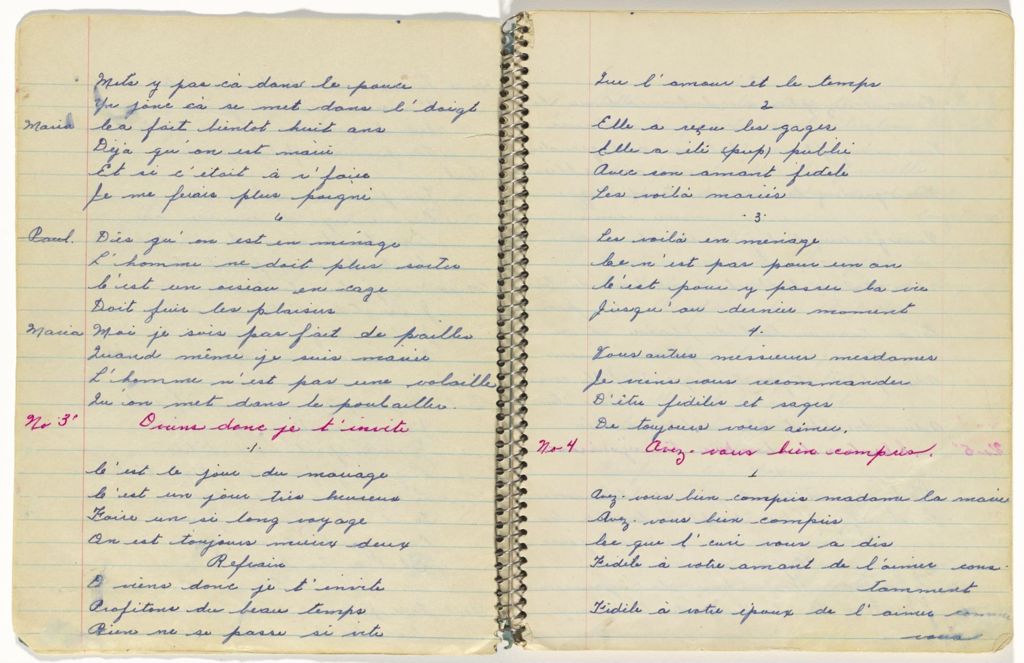 Mets y pas ca dans le pouce
Yn jonc ca se met dans l'doigt
Maria Ca fait bientot huit ans
Déja qu'on est marié
Et si c'était à r'faire
Je me ferais plus poigné
6
Paul. Dès qu'on est en ménage
L'homme ne doit plus sortir
C'est un oiseau en cage
Doit fuir les plaisirs
Maria Moi je suis pas fait de paille
Quand même je suis mariée
L'homme n'est pas une volaille
Qu on met dans le poulailler.
No 3' O viens donc je t'invite
1.
C'est le jour du mariage
C'est un jour très heureux
Faire un si long voyage
On est toujours mieux deux
Refrain
O viens donc je t'invite
Profitons du beau temps
Rien ne se passe si vite
Que l'amour et le temps
2
Elle a reçu les gages
Elle a été (pup) publié
Avec son amant fidèle
Les voilà mariés
3.
Les voilà en ménage
Ce n'est pas pour un an
C'est pour y passer la vie
Jusqu'au dernier moment
4.
Vous autres messieurs mesdames
Je viens vous recommander
D'être fidèles et sages
De toujours vous aimer.
No 4 Avez-vous bien compris.
1
Avez-vous bien compris madame la mariée
Avez-vous bien compris
Ce que l'curé vous a dis
Fidèle à votre amant de l'aimer cons-
tamment
Fidèle à votre époux de l'aimer comme
vous